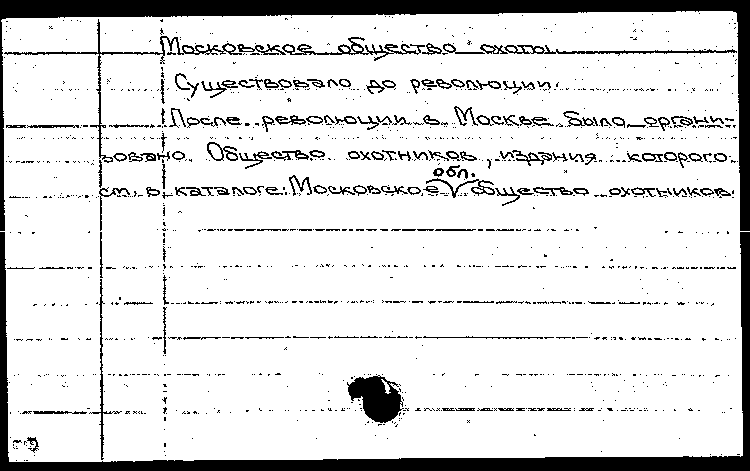 Московское общество охоты.
Существовало до революции.
После революции в Москве было органи-
зовано Общество охотников, издания которого
см. в каталоге: Московское обл. общество охотников.